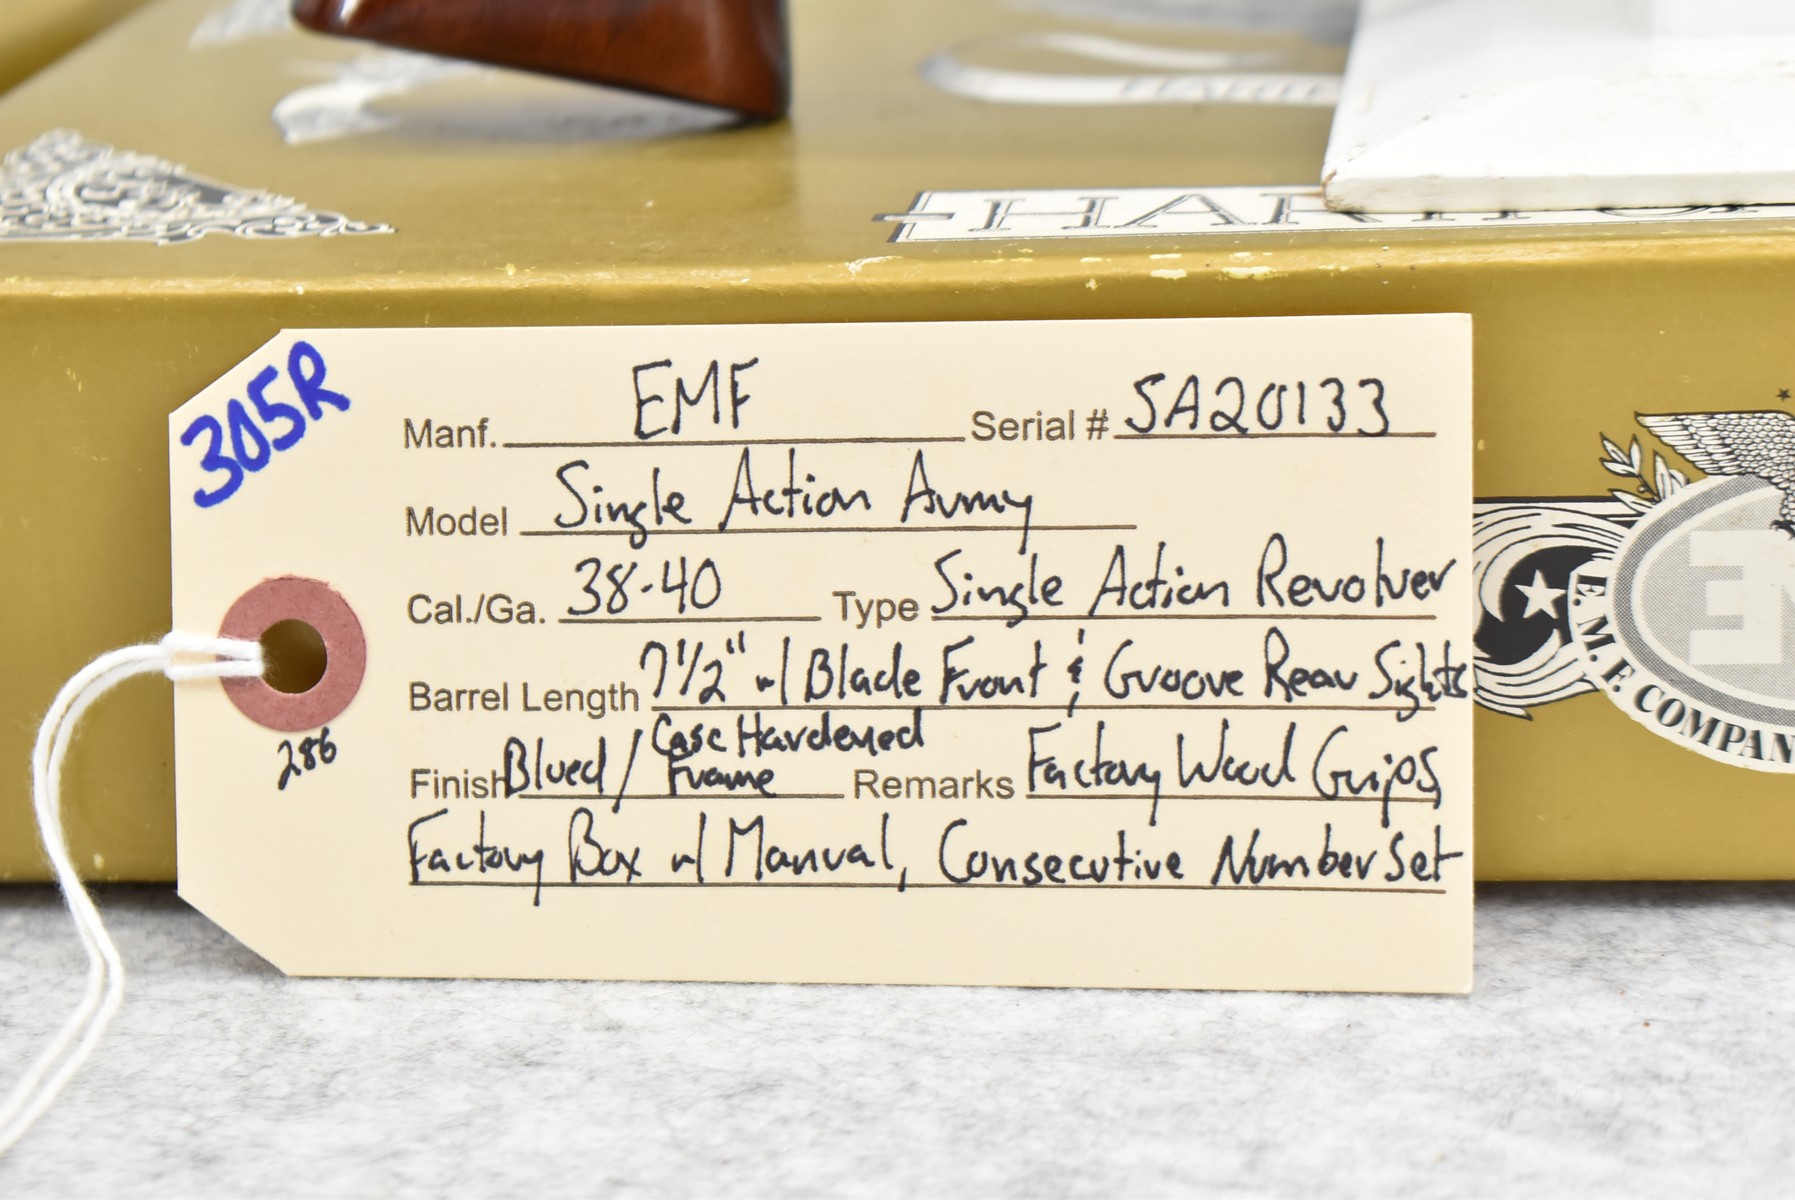 305R
Manf. EMF Serial # SA20133
Model Single Action Army
Cal./Ga. 38-40 Type Single Action Revolver
Barrel Length 7 1/2" w/ Blade Front & Groove Rear Sights
Finish Blued / Case Hardened Frame Remarks Factory Wood Grips,
Factory Box w/ Manual, Consecutive Number Set
286
E. M. F. COMPAN